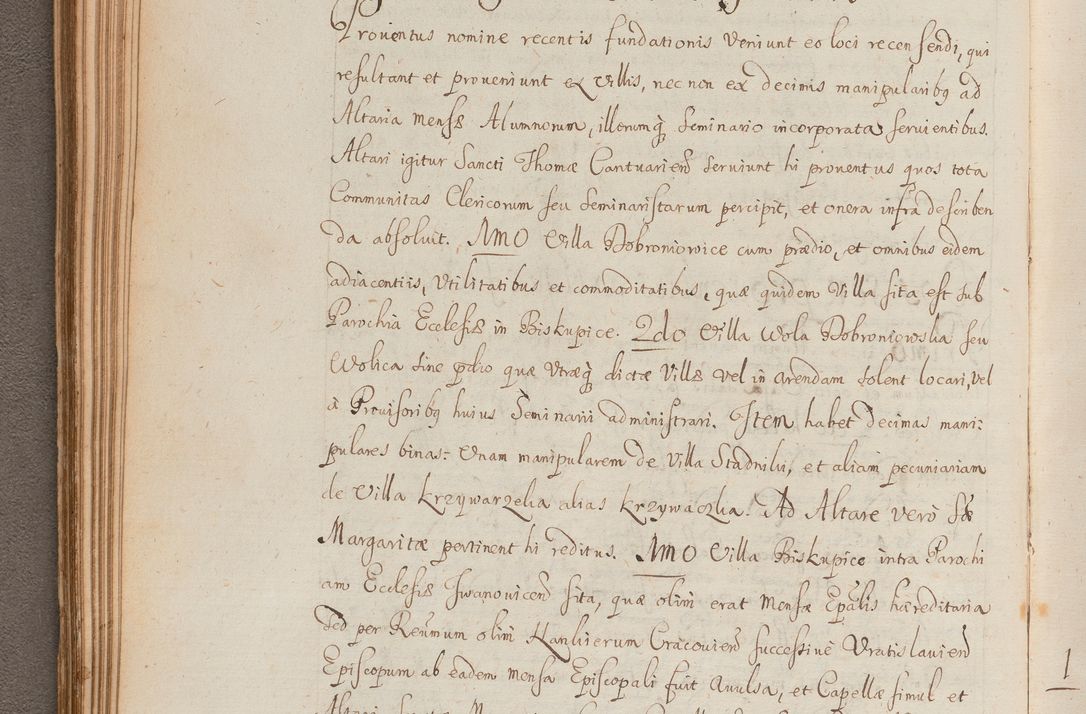 Proventus nomine recentis fundationis veniunt eo loci recensendi, qui
resultant et proveniunt ex villis, nec non ex decimis manipularibq ad
Altaria mensæ Alumnorum, illorumq Seminario incorporata servientibus.
Altari igitur Sancti Thomæ Cantuarien serviunt hi proventus quos tota
Communitas Clericorum seu Seminaristarum percipit, et onera infra describen
da absolvit. Imo Villa Dobroniowice cum prædio, et omnibus eidem
adiacentiis, Utilitatibus et commoditatibus, quæ quidem Villa sita est sub
Parochia Ecclesiæ in Biskupice. 2do Villa Wola Dobroniowska seu
Wolica sine pdio quæ utræq dictæ Villæ vel in arendam solent locari, vel
à Provisoribq huius Seminarii administrari. Item habet decimas mani:
pulares binas: Unam manipularem de Villa Stadniki, et aliam pecuniariam
de Villa Krzywarzeka alias Krzywaczka. Ad Altare verò Sæ
Margaritæ pertinent hi reditus. Imo Villa Biskupice intra Parochi
am Ecclesiæ Iwanovicen sita, quæ olim erat Mensæ Epalis hæreditaria
sed per Reumum olim Cracovien successivè Vratislavien
Episcopum ab eadem mensa Episcopali fuit avulsa, et Capellæ simul et
1